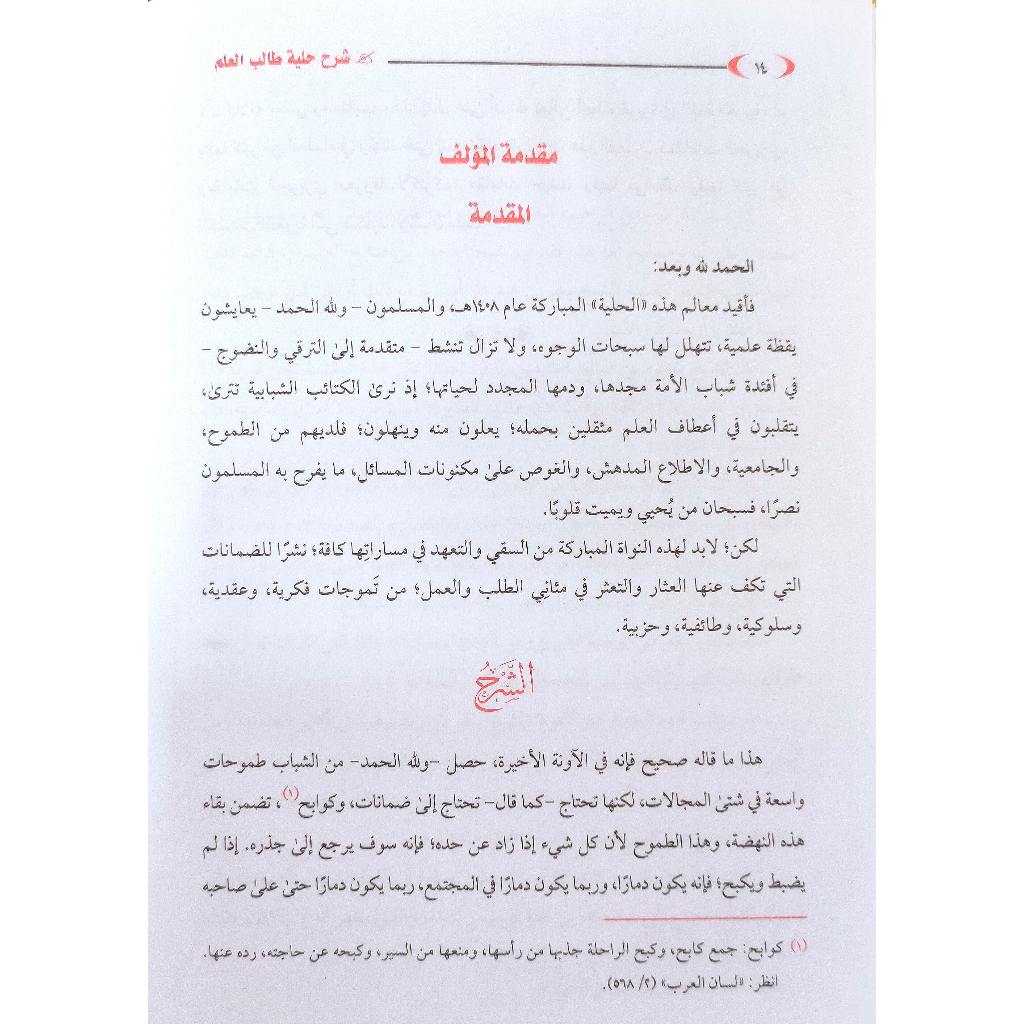 ١٤
شرح حلية طالب العلم
مقدمة المؤلف
المقدمة
الحمد لله وبعد:
فأقيد معالم هذه «الحلية» المباركة عام ١٤٠٨هـ، والمسلمون - ولله الحمد - يعايشون
يقظة علمية، تتهلل لها سبحات الوجوه، ولا تزال تنشط - متقدمة إلىٰ الترقي والنضوج -
في أفئدة شباب الأمة مجدها، ودمها المجدد لحياتها؛ إذ نرىٰ الكتائب الشبابية تترىٰ،
يتقلبون في أعطاف العلم مثقلين بحمله؛ يعلون منه وينهلون؛ فلديهم من الطموح،
والجامعية، والاطلاع المدهش، والغوص علىٰ مكنونات المسائل، ما يفرح به المسلمون
نصرًا، فسبحان من يُحيي ويميت قلوبًا.
لكن؛ لابد لهذه النواة المباركة من السقي والتعهد في مساراتها كافة؛ نشرًا للضمانات
التي تكف عنها العثار والتعثر في مثاني الطلب والعمل؛ من تَموجات فكرية، وعقدية،
وسلوكية، وطائفية، وحزبية.
الشَّرْحُ
هذا ما قاله صحيح فإنه في الآونة الأخيرة، حصل -ولله الحمد- من الشباب طموحات
واسعة في شتىٰ المجالات، لكنها تحتاج -كما قال- تحتاج إلىٰ ضمانات، وكوابح(١)، تضمن بقاء
هذه النهضة، وهذا الطموح لأن كل شيء إذا زاد عن حده؛ فإنه سوف يرجع إلىٰ جذره. إذا لم
يضبط ويكبح؛ فإنه يكون دمارًا، وربما يكون دمارًا في المجتمع، ربما يكون دمارًا حتىٰ علىٰ صاحبه
(١) كوابح: جمع كابح، وكبح الراحلة جذبها من رأسها، ومنعها من السير، وكبحه عن حاجته، رده عنها.
انظر: «لسان العرب» (٢/ ٥٦٨).